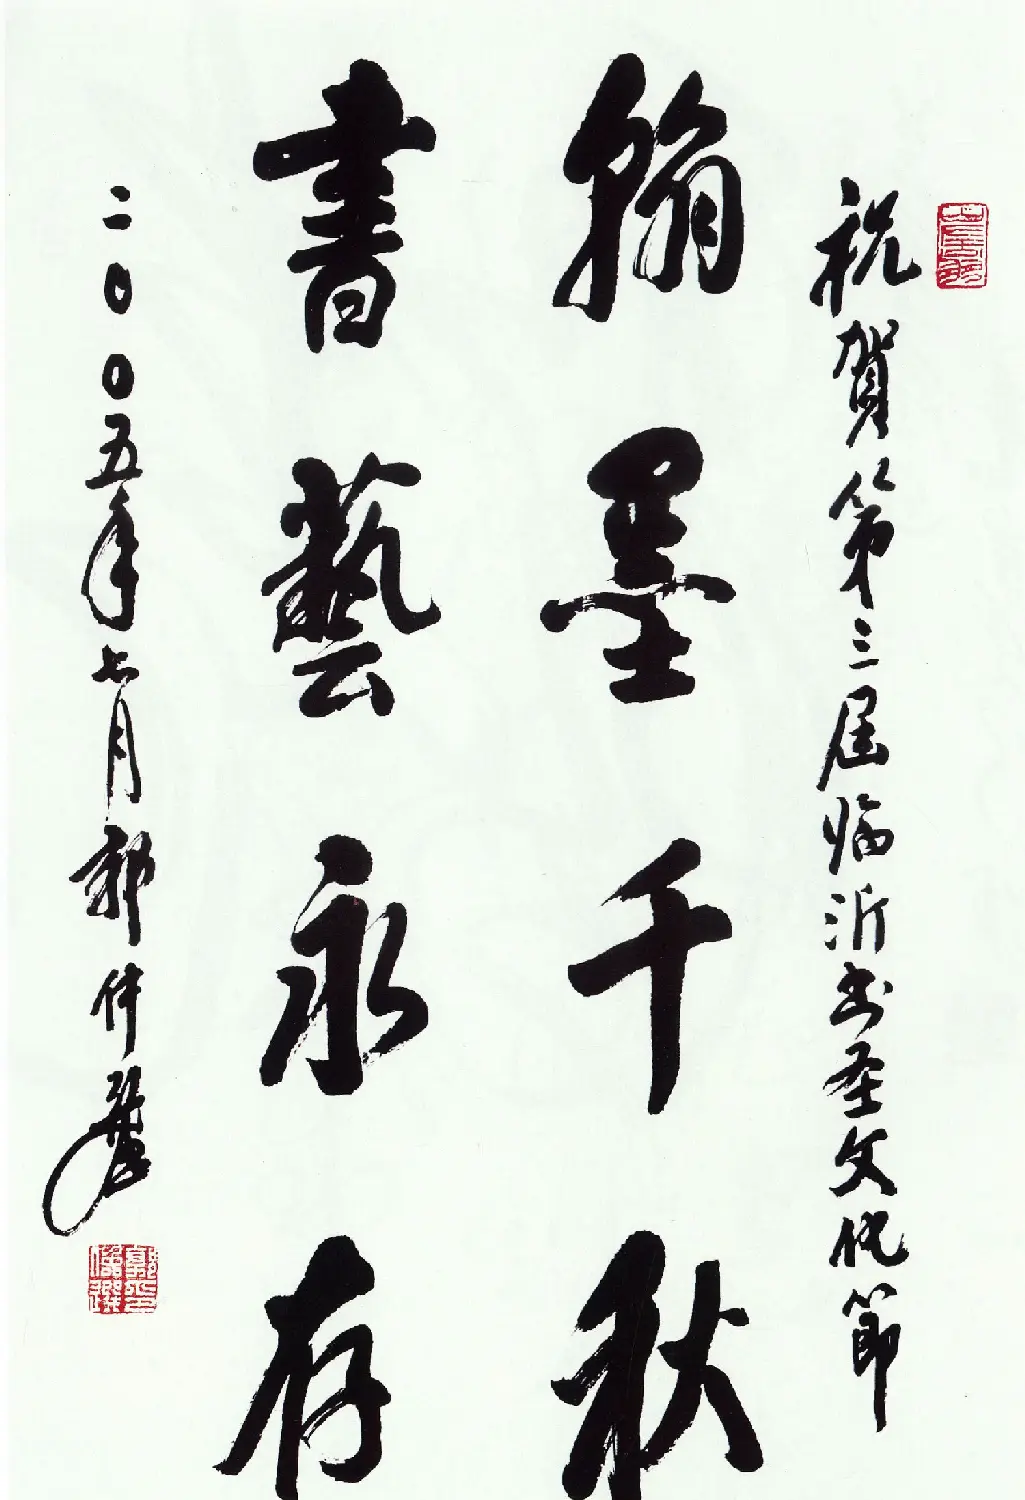 祝賀第三届临沂书圣文化節
翰墨千秋
書藝永存
二〇〇五年七月郭仲選